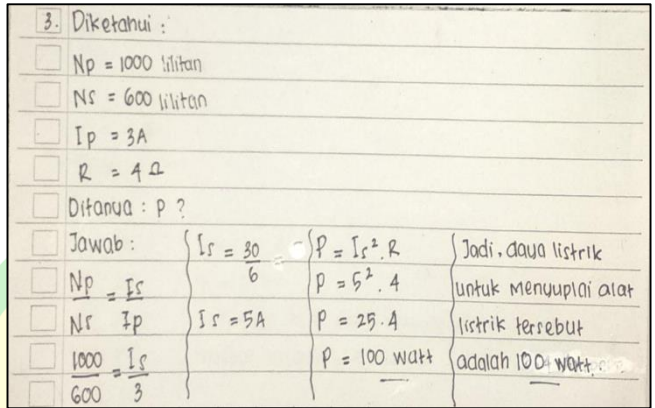 3. Diketahui :
Np = 1000 lilitan
Ns = 600 lilitan
Ip = 3A
R = 4 Ω
Ditanya : P ?
Jawab :
Np/Ns = Is/Ip
1000/600 = Is/3
Is = 30/6 =
Is = 5A
P = Is². R
P = 5². 4
P = 25.4
P = 100 watt
Jadi, daya listrik
untuk menyuplai alat
listrik tersebut
adalah 100 watt.